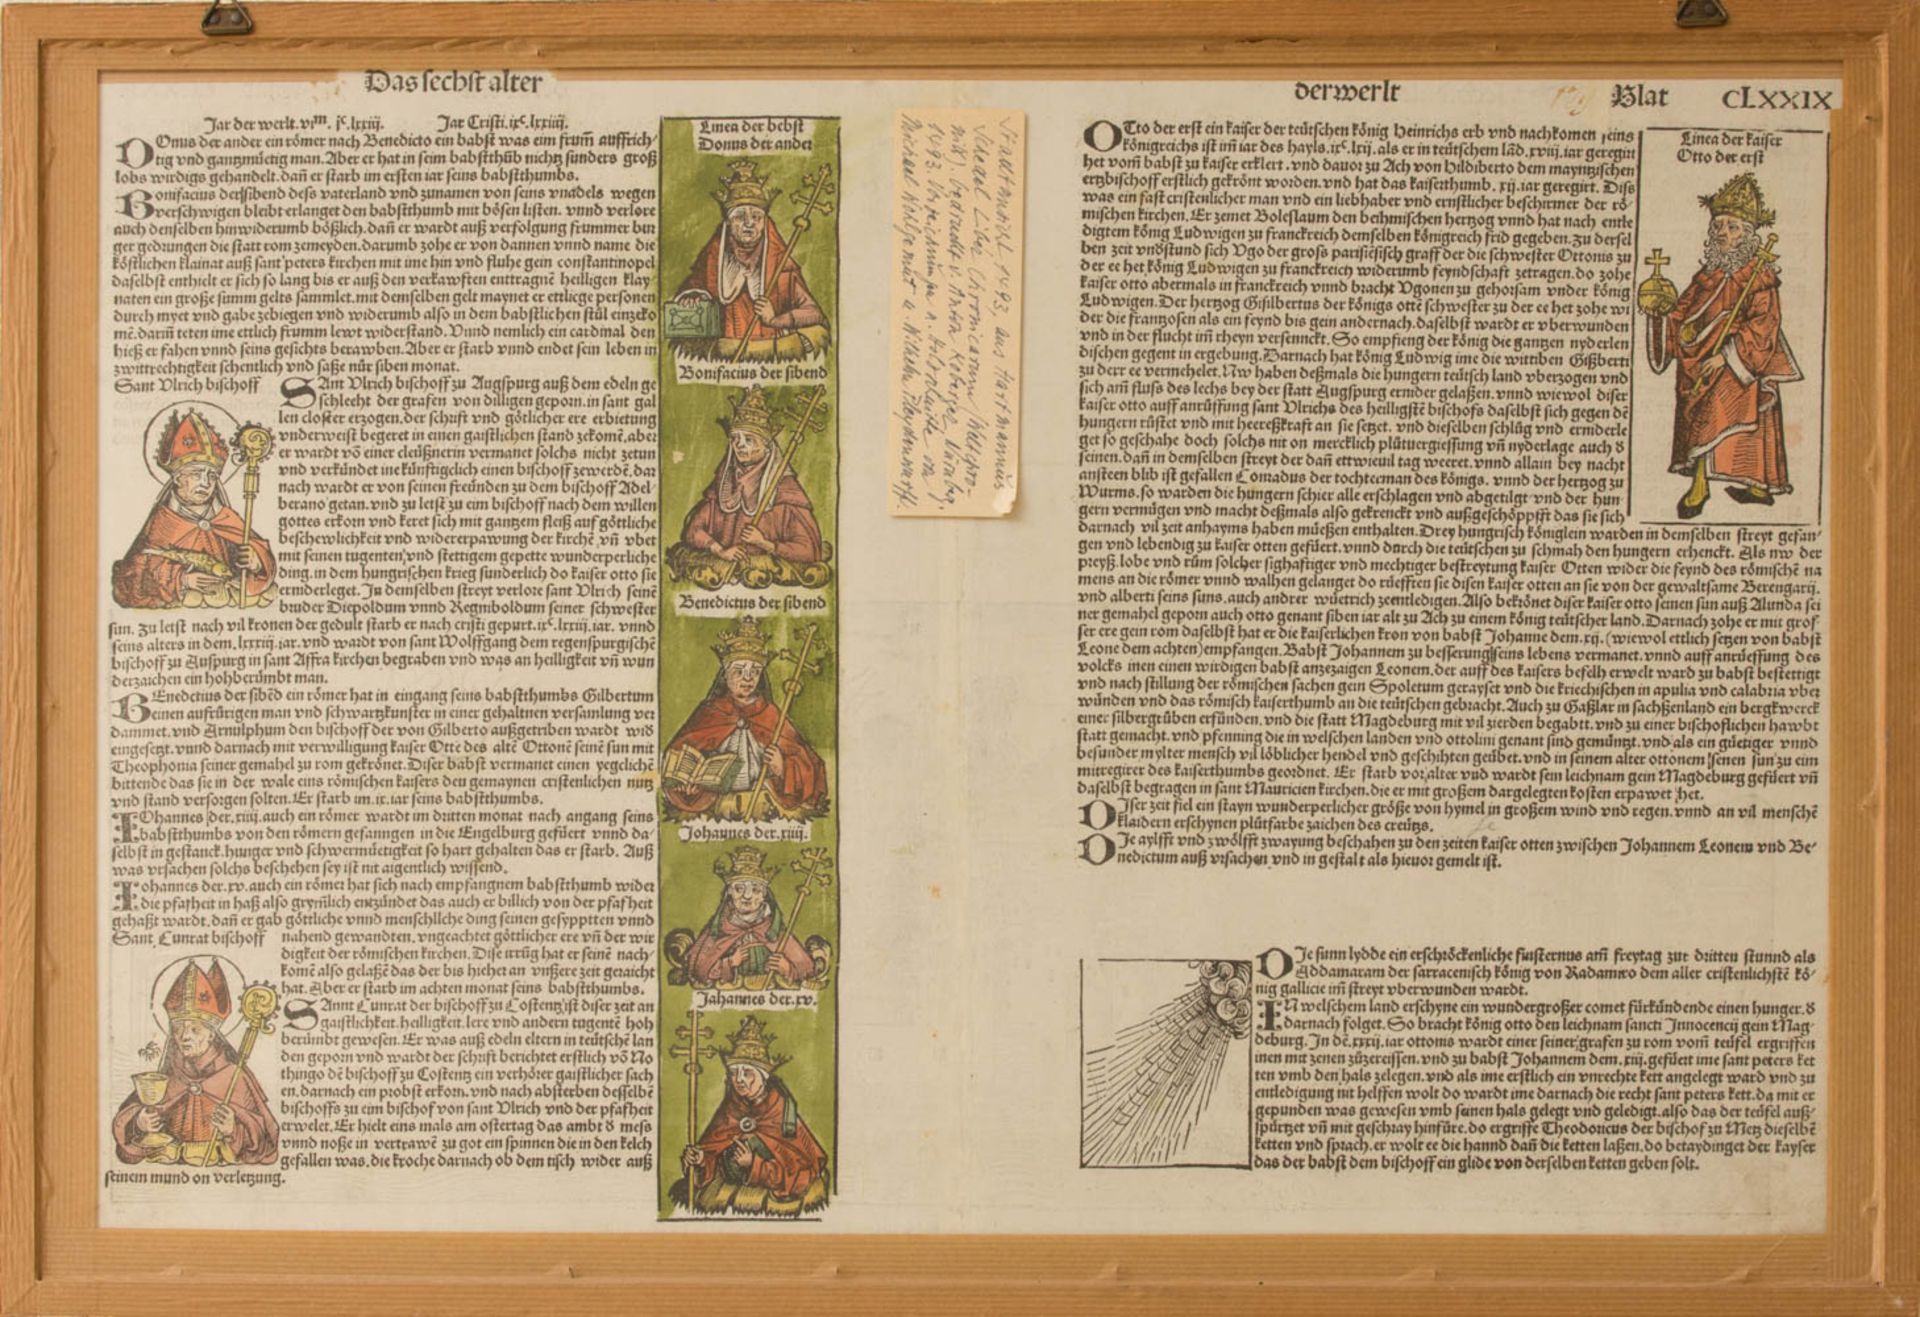 Das sechst alter
Jar der werlt. vim. jc. lxxiij. Jar Cristi. ixc. lxxiiij.
DOnus der ander ein römer nach Benedicto ein babst was ein frum̄ auffrich-
tig vnd gantzmüetig man. Aber er hat in seim babstthūb nichtz sunders groß
lobs wirdigs gehandelt. dañ er starb im ersten iar seins babstthumbs.
Bonifacius der sibend dess vaterland vnd zunamen von seins vnadels wegen
verschwigen bleibt erlanget den babstthumb mit bösen listen. vnnd verlore
auch denselben hinwiderumb bößlich. dañ er wardt auß verfolgung frummer bur
ger gedrungen die statt rom zemeyden. darumb zohe er von dannen vnnd name die
köstlichen klainat auß sant peters kirchen mit ime hin vnd fluhe gein constantinopel
daselbst enthielt er sich so lang bis er auß den verkawften enttragnē heiligen klay
naten ein große summ gelts sammlet. mit demselben gelt maynet er ettliche personen
durch myet vnd gabe zebiegen vnd widerumb also in dem babstlichen stůl einzeko
mē. darum̄ teten ime ettlich frumm lewt widerstand. Vnnd nemlich ein cardinal den
hieß er fahen vnnd seins gesichts berawben. Aber er starb vnnd endet sein leben in
zwittrechtigkeit schentlich vnd saße nür siben monat.
Sant Vlrich bischoff
SAnt Vlrich bischoff zu Augspurg auß dem edeln ge
schlecht der grafen von dilligen geporn. in sant gal
len closter erzogen. der schrift vnd götlicher ere erbietung
vnderweist begeret in einen gaistlichen stand zekomē. aber
er wardt vō einer cleüßnerin vermanet solchs nicht zetun
vnd verkündet ine künftigclich einen bischoff zewerdē. dar
nach wardt er von seinen freünden zu dem bischoff Adel-
berano getan. vnd zu letst zu eim bischoff nach dem willen
gottes erkorn vnd keret sich mit gantzem fleiß auf göttliche
beschewlichkeit vnd widererpawung der kirchē. vñ vbet
mit seinen tugenten, vnd stettigem gepette wunderperliche
ding. in dem hungrischen krieg sunderlich do kaiser otto sie
erniderleget. Jn demselben streyt verlore sant Vlrich seinē
bruder Diepoldum vnnd Regniboldum seiner schwester
sun. Zu letst nach vil kronen der gedult starb er nach cristi gepurt. ixc. lxxiij. iar. vnnd
seins alters in dem. lxxxiij. iar. vnd wardt von sant Wolffgang dem regenspurgischē
bischoff zu Auspurg in sant Affra kirchen begraben vnd was an heilligkeit vñ wun
derzaichen ein hohberümbt man.
BEnedictus der sibēd ein römer hat in eingang seins babstthumbs Gilbertum
einen aufrürigen man vnd schwartzkunster in einer gehaltnen versamlung ver
dammet. vnd Arnulphum den bischoff der von Gilberto außgetriben wardt wid
eingesetzt. vnnd darnach mit verwilligung kaiser Otte des altē Ottonē seinē sun mit
Theophonia seiner gemahel zu rom gekrönet. Diser babst vermanet einen yegclichē
bittende das sie in der wale eins römischen kaisers den gemaynen cristenlichen nutz
vnd stand versorgen solten. Er starb im. ix. iar seins babstthumbs.
IOhannes der. xiiij. auch ein römer wardt im dritten monat nach angang seins
babstthumbs von den römern gefanngen in die Engelburg gefüert vnnd da-
selbst in gestanck. hunger vnd schwermüetigkeit so hart gehalten das er starb. Auß
was vrsachen solchs beschehen sey ist nit aigentlich wissend.
Iohannes der. xv. auch ein römer hat sich nach empfangnem babstthumb wider
die pfafheit in haß also grymlich entzündet das auch er billich von der pfafheit
gehaßt wardt. dañ er gab göttliche vnnd menschlliche ding seinen gesypptten vnnd
Sant Cunrat bischoff
nahend gewandten. vngeachtet göttlicher ere vñ der wir
digkeit der römischen kirchen. Dise irrüg hat er seinē nach-
komē also gelaßē das der bis hiehet an vnßere zeit geraicht
hat. Aber er starb im achten monat seins babstthumbs.
SAnnt Cunrat der bischoff zu Costentz ist diser zeit an
gaistlichkeit. heilligkeit. lere vnd andern tugentē hoh
berümbt gewesen. Er was auß edeln eltern in teütschē lan
den geporn vnd wardt der schrift berichtet erstlich vō No
thingo dē bischoff zu Costentz ein verhörer gaistlicher sach
en. darnach ein probst erkorn. vnd nach absterben desselbē
bischoffs zu eim bischof von sant Vlrich vnd der pfafheit
erwelet. Er hielt eins mals am ostertag das ambt d mess
vnnd noße in vertrawē zu got ein spinnen die in den kelch
gefallen was. die kroche darnach ob dem tisch wider auß
seinem mund on verletzung.
Linea der bebst
Donus der ander
Bonifacius der sibend
Benedictus der sibend
Johannes der. xiiij.
Jahannes der. xv.
Stadtansicht 1493, aus Hartmannus
Schedel Liber Chronicarum (Weltchro-
nik). gedruckt v. Anton Koberger, Nürnberg,
1493. n. Holzschnitte von
Michael Wolgemut u. Wilhelm Pleydenwurff.
der werlt Blat CLXXIX
OTto der erst ein kaiser der teütschen könig Heinrichs erb vnd nachkomen seins
königreichs ist im̄ iar des hayls. ixc. lxij. als er in teütschem lād. xviij. iar geregirt
het vom̄ babst zu kaiser erklert. vnd dauor zu Ach von Hildiberto dem mayntzischen
ertzbischoff erstlich gekrönt worden. vnd hat das kaiserthumb. xij. iar geregirt. Diss
was ein fast cristenlicher man vnd ein liebhaber vnd ernstlicher beschirmer der rö-
mischen kirchen. Er zemet Boleslaum den behmischen hertzog vnnd hat nach entle
digtem könig Ludwigen zu franckreich demselben königreich frid gegeben. Zu dersel
ben zeit vndstund sich Vgo der groß parisiesisch graff der die schwester Ottonis zu
der ee het. könig Ludwigen zu franckreich widerumb feyndschaft zetragen. do zohe
kaiser otto abermals in franckreich vnnd bracht Vgonen zu gehorsam vnder könig
Ludwigen. Der hertzog Gisilbertus der königs ottē schwester zu der ee het zohe wi
der die frantzosen als ein feynd bis gein andernach. daselbst wardt er vberwunden
vnd in der flucht im̄ rheyn versennckt. So empfieng der könig die gantzen nyderlen
dischen gegent in ergebung. Darnach hat könig Ludwig ime die wittiben Gißberti
zu derr ee vermehelet. Nw haben deßmals die hungern teütsch land vberzogen vnd
sich am̄ fluss des lechs bey der statt Augspurg ernider gelaßen. vnnd wiewol diser
kaiser otto auff anrüffung sant Vlrichs des heilligstē bischofs daselbst sich gegen dē
hungern rüstet vnd mit heereßkraft an sie setzet. vnd dieselben schlüg vnd erniderle
get so geschahe doch solchs nit on mercklich plütuergiessung vñ nyderlage auch d
seinen. dañ in demselben streyt der dañ ettwieuil tag weeret. vnnd allain bey nacht
ansteen blib ist gefallen Conradus der tochterman des königs. vnnd der hertzog zu
Wurms. so warden die hungern schier alle erschlagen vnd abgetilgt vnd der hun-
gern vermügen vnd macht deßmals also gekrenckt vnd außgeschöppfft das sie sich
darnach vil zeit anhayms haben müeßen enthalten. Drey hungrisch königlein warden in demselben streyt gefan-
gen vnd lebendig zu kaiser otten gefüert. vnnd durch die teütschen zu schmah den hungern erhenckt. Als nw der
preyß. lobe vnd rům solcher sighaftiger vnd mechtiger bestreytung kaiser Otten wider die feynd des römischē na
mens an die römer vnnd walhen gelanget do rüefften sie disen kaiser otten an sie von der gewaltsame Berengarij.
vnd alberti seins suns. auch andrer wüetrich zeentledigen. Also bekrönet diser kaiser otto seinen sun auß Alunda sei
ner gemahel geporn auch otto genant siben iar alt zu Ach zu einem könig teütscher land. Darnach zohe er mit grof
ser ere gein rom daselbst hat er die kaiserlichen kron von babst Johanne dem. xij. (wiewol ettlich setzen von babst
Leone dem achten) empfangen. Babst Johannem zu besserung seins lebens vermanet. vnnd auff anrüeffung des
volcks inen einen wirdigen babst anzezaigen Leonem. der auff des kaisers befelh erwelt ward zu babst bestettigt
vnd nach stillung der römischen sachen gein Spoletum gerayset vnd die kriechischen in apulia vnd calabria vber
wūnden vnd das römisch kaiserthumb an die teütschen gebracht. Auch zu Gaßlar in sachßenland ein bergkwerck
einer silbergrüben erfünden. vnd die statt Magdeburg mit vil zierden begabtt. vnd zu einer bischoflichen hawbt
statt gemacht. vnd pfenning die in welschen landen vnd ottolini genant sind gemüntzt. vnd als ein güetiger vnnd
besunder mylter mensch vil löblicher hendel vnd geschihten geübet. vnd in seinem alter ottonem senen sun zu eim
mitregirer des kaiserthumbs geordnet. Er starb vor alter vnd wardt sein leichnam gein Magdeburg gefüert vñ
daselbst begragen in sant Mauricien kirchen. die er mit großem dargelegten kosten erpawet het.
DJser zeit fiel ein stayn wunderperlicher größe von hymel in großem wind vnd regen. vnnd an vil menschē
klaidern erschynen plütfarbe zaichen des creütz̄s.
DJe aylfft vnd zwölfft zwayung beschahen zu den zeiten kaiser otten zwischen Johannem Leonem vnd Be-
nedictum auß vrsachen vnd in gestalt als hieuor gemelt ist.
Linea der kaiser
Otto der erst
DJe sunn lydde ein erschröckenliche finsternus am̄ freytag zur dritten stunnd als
Addamaram der sarracenisch könig von Radamiro dem aller cristenlichstē kö-
nig gallicie im̄ streyt vberwunden wardt.
IN welschem land erschyne ein wundergroßer comet fürkündende einen hunger. d
darnach folget. So bracht könig otto den leichnam sancti Innocencij gein Mag-
deburg. Jn dē. xxxij. iar ottonis wardt einer seiner grafen zu rom vom̄ teüfel ergriffen
inen mit zenen zůzereissen. vnd zu babst Johannem dem. xiij. gefüert ime sant peters ket
ten vmb den hals zelegen. vnd als ime erstlich ein vnrechte kett angelegt ward vnd zu
entledigung nit helffen wolt do wardt ime darnach die recht sant peters kett. da mit er
gepunden was gewesen vmb seinen hals gelegt vnd geledigt. also das der teüfel auß-
spürtzet vñ mit geschray hinfüre. do ergriffe Theodoricus der bischof zu Metz dieselbē
ketten vnd sprach. er wolt ee die hannd dañ die ketten laßen. do betaydinget der kayser
das der babst dem bischoff ein glide von derselben ketten geben solt.